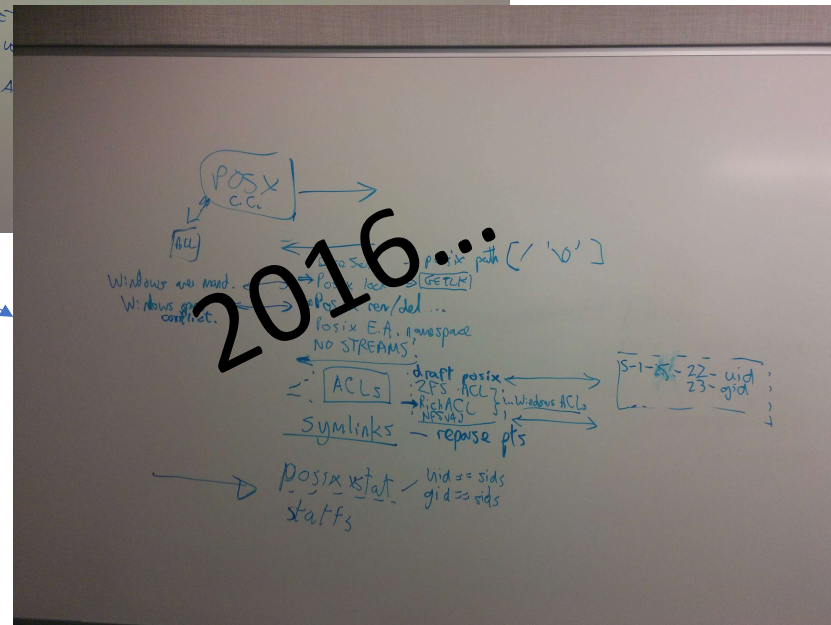 POSX
C.C.
ACL
path [ / '\0' ]
Windows mand.
Posix GETLK
Windows
conflict.
ren/del ...
Posix E.A. namespace
NO STREAMS
ACLs
draft posix
ZFS ACL
RichACL
NFSV4
Windows ACLs
S-1- -22- uid
23- gid
Symlinks - reparse pts
posix stat / uid == sids
gid == sids
statfs
2016...